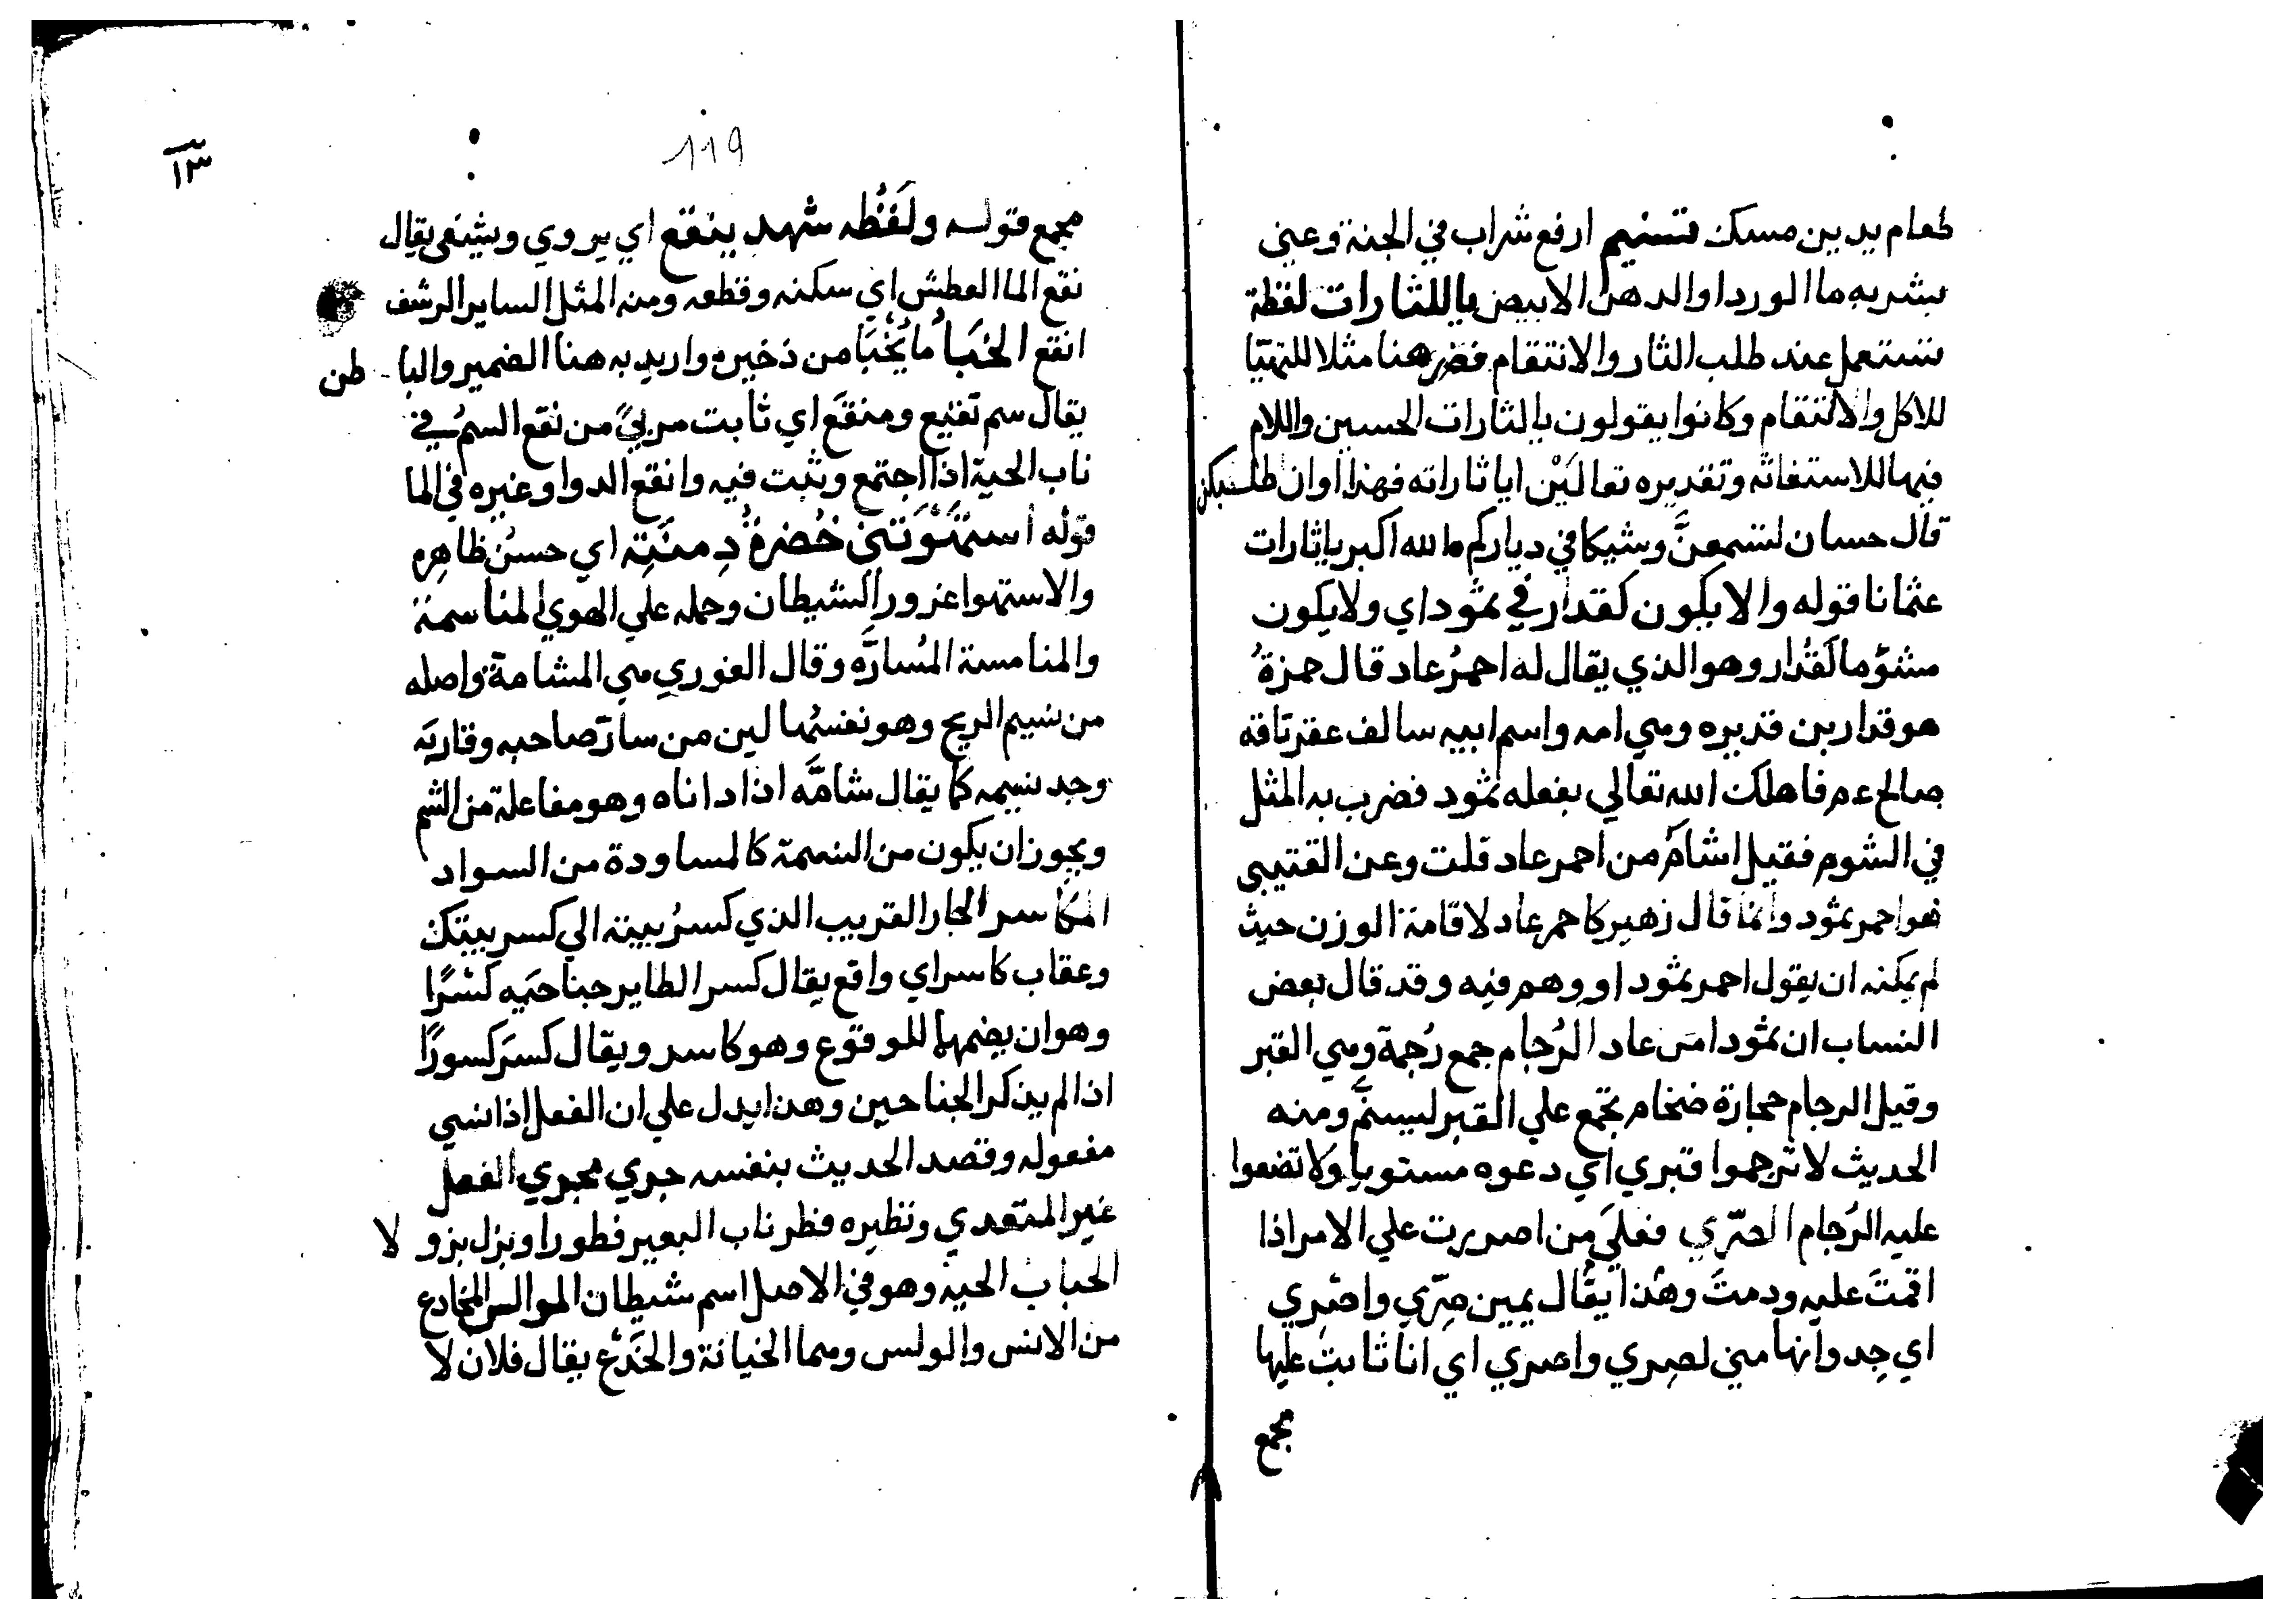 طعام يدين مسكن تسنيم ارفع شراب في الجنة وعني
بشربه ما الورد او الدهن الابيض يا للثارات لفظة
تستعمل عند طلب الثار والانتقام فضرب هنا مثلا للتهيّا
للاكل والالتقام وكانوا يقولون يالثارات الحسين واللام
فيها للاستغاثة وتقديره تعالَيْن ايا ثاراته فهذا اوان طلبكن
قال حسان لتسمعنَّ وشيكا في دياركم الله اكبر يا ثارات
عثمانا قوله والا يكون كقدار في ثمود اي ولا يكون
مشئوما كقُدار وهو الذي يقال له احمرُ عاد قال حمزةُ
هو قدار بن قديره وهي امه واسم ابيه سالف عقر ناقة
صالح عم فاهلك الله تعالي بفعله ثمود فضرب به المثل
في الشوم فقيل اشأم من احمر عاد قلت وعن القتيبي
هو احمر ثمود وانما قال زهير كاحمر عاد لاقامة الوزن حيث
لم يمكنه ان يقول احمر ثمود او وهم فيه وقد قال بعض
النساب ان ثمودا من عاد الرُجام جمع رُجمة وهي القبر
وقيل الرجام حجارة ضخام تجمع علي القبر ليسنَّم ومنه
الحديث لا ترجموا قبري اي دعوه مستويا ولا تضعوا
عليه الرُجام الصرّي فعلَي من اصررت علي الامر اذا
اقمتَ عليه ودمتَ وهذا يقال يمين صِرّي واصِري
اي جد وانها مني لصري واصري اي انا ثابت عليها
مجمع
119
١٣
مجمع قوله ولَفْظُه شهد ينقع اي يروي ويشفى يقال
نقع الما العطش اي سكنه وقطعه ومنه المثل الساير الرشف
انقع الخَبأ ما يُخْبَا من ذخيره واريد به هنا الضمير والباطن
يقال سم نقيع ومنقع اي ثابت مربيً من نقع السمُ في
ناب الحية اذا اجتمع وثبت فيه وانقع الدوا وغيره في الما
قوله استهْوَتني خُضرةُ دِمنَتِه اي حسنُ ظاهره
والاستهوا غرور الشيطان وحمله علي الهوي المناسمة
والمنامسة المُسارَّه وقال الغوري هي المشامة واصله
من نسيم الريح وهو نفسُها لين من سارّ صاحبه وقاربَه
وجد نسيمه كما يقال شامَّه اذا داناه وهو مفاعلة من الشم
ويجوز ان يكون من النسمة كالمساودة من السواد
المكاسر الجار القريب الذي كسرُ بيته الي كسر بيتك
وعقاب كاسر اي واقع يقال كسر الطاير جناحَيه كَسْرًا
وهو ان يضمهما للوقوع وهو كاسر ويقال كسرَ كسورًا
اذا لم يذكر الجناحين وهذا يدل علي ان الفعل اذا نسي
مفعوله وقصد الحديث بنفسه جري مجري الفعل
غير المتعدي ونظيره فطر ناب البعير فطورا وبزل بزولا
الحباب الحية وهو في الاصل اسم شيطان الموالس المخادع
من الالس والولس وهما الخيانة والخَدْع يقال فلان لا